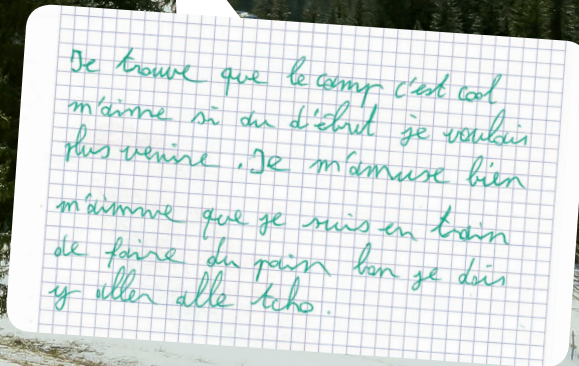 Je trouve que le camp c'est cool
m'aime si au d'ebut je voulais
plus venire. Je m'amuse bien
m'aimme que je suis en train
de faire du pain bon je dois
y aller alle tcho.